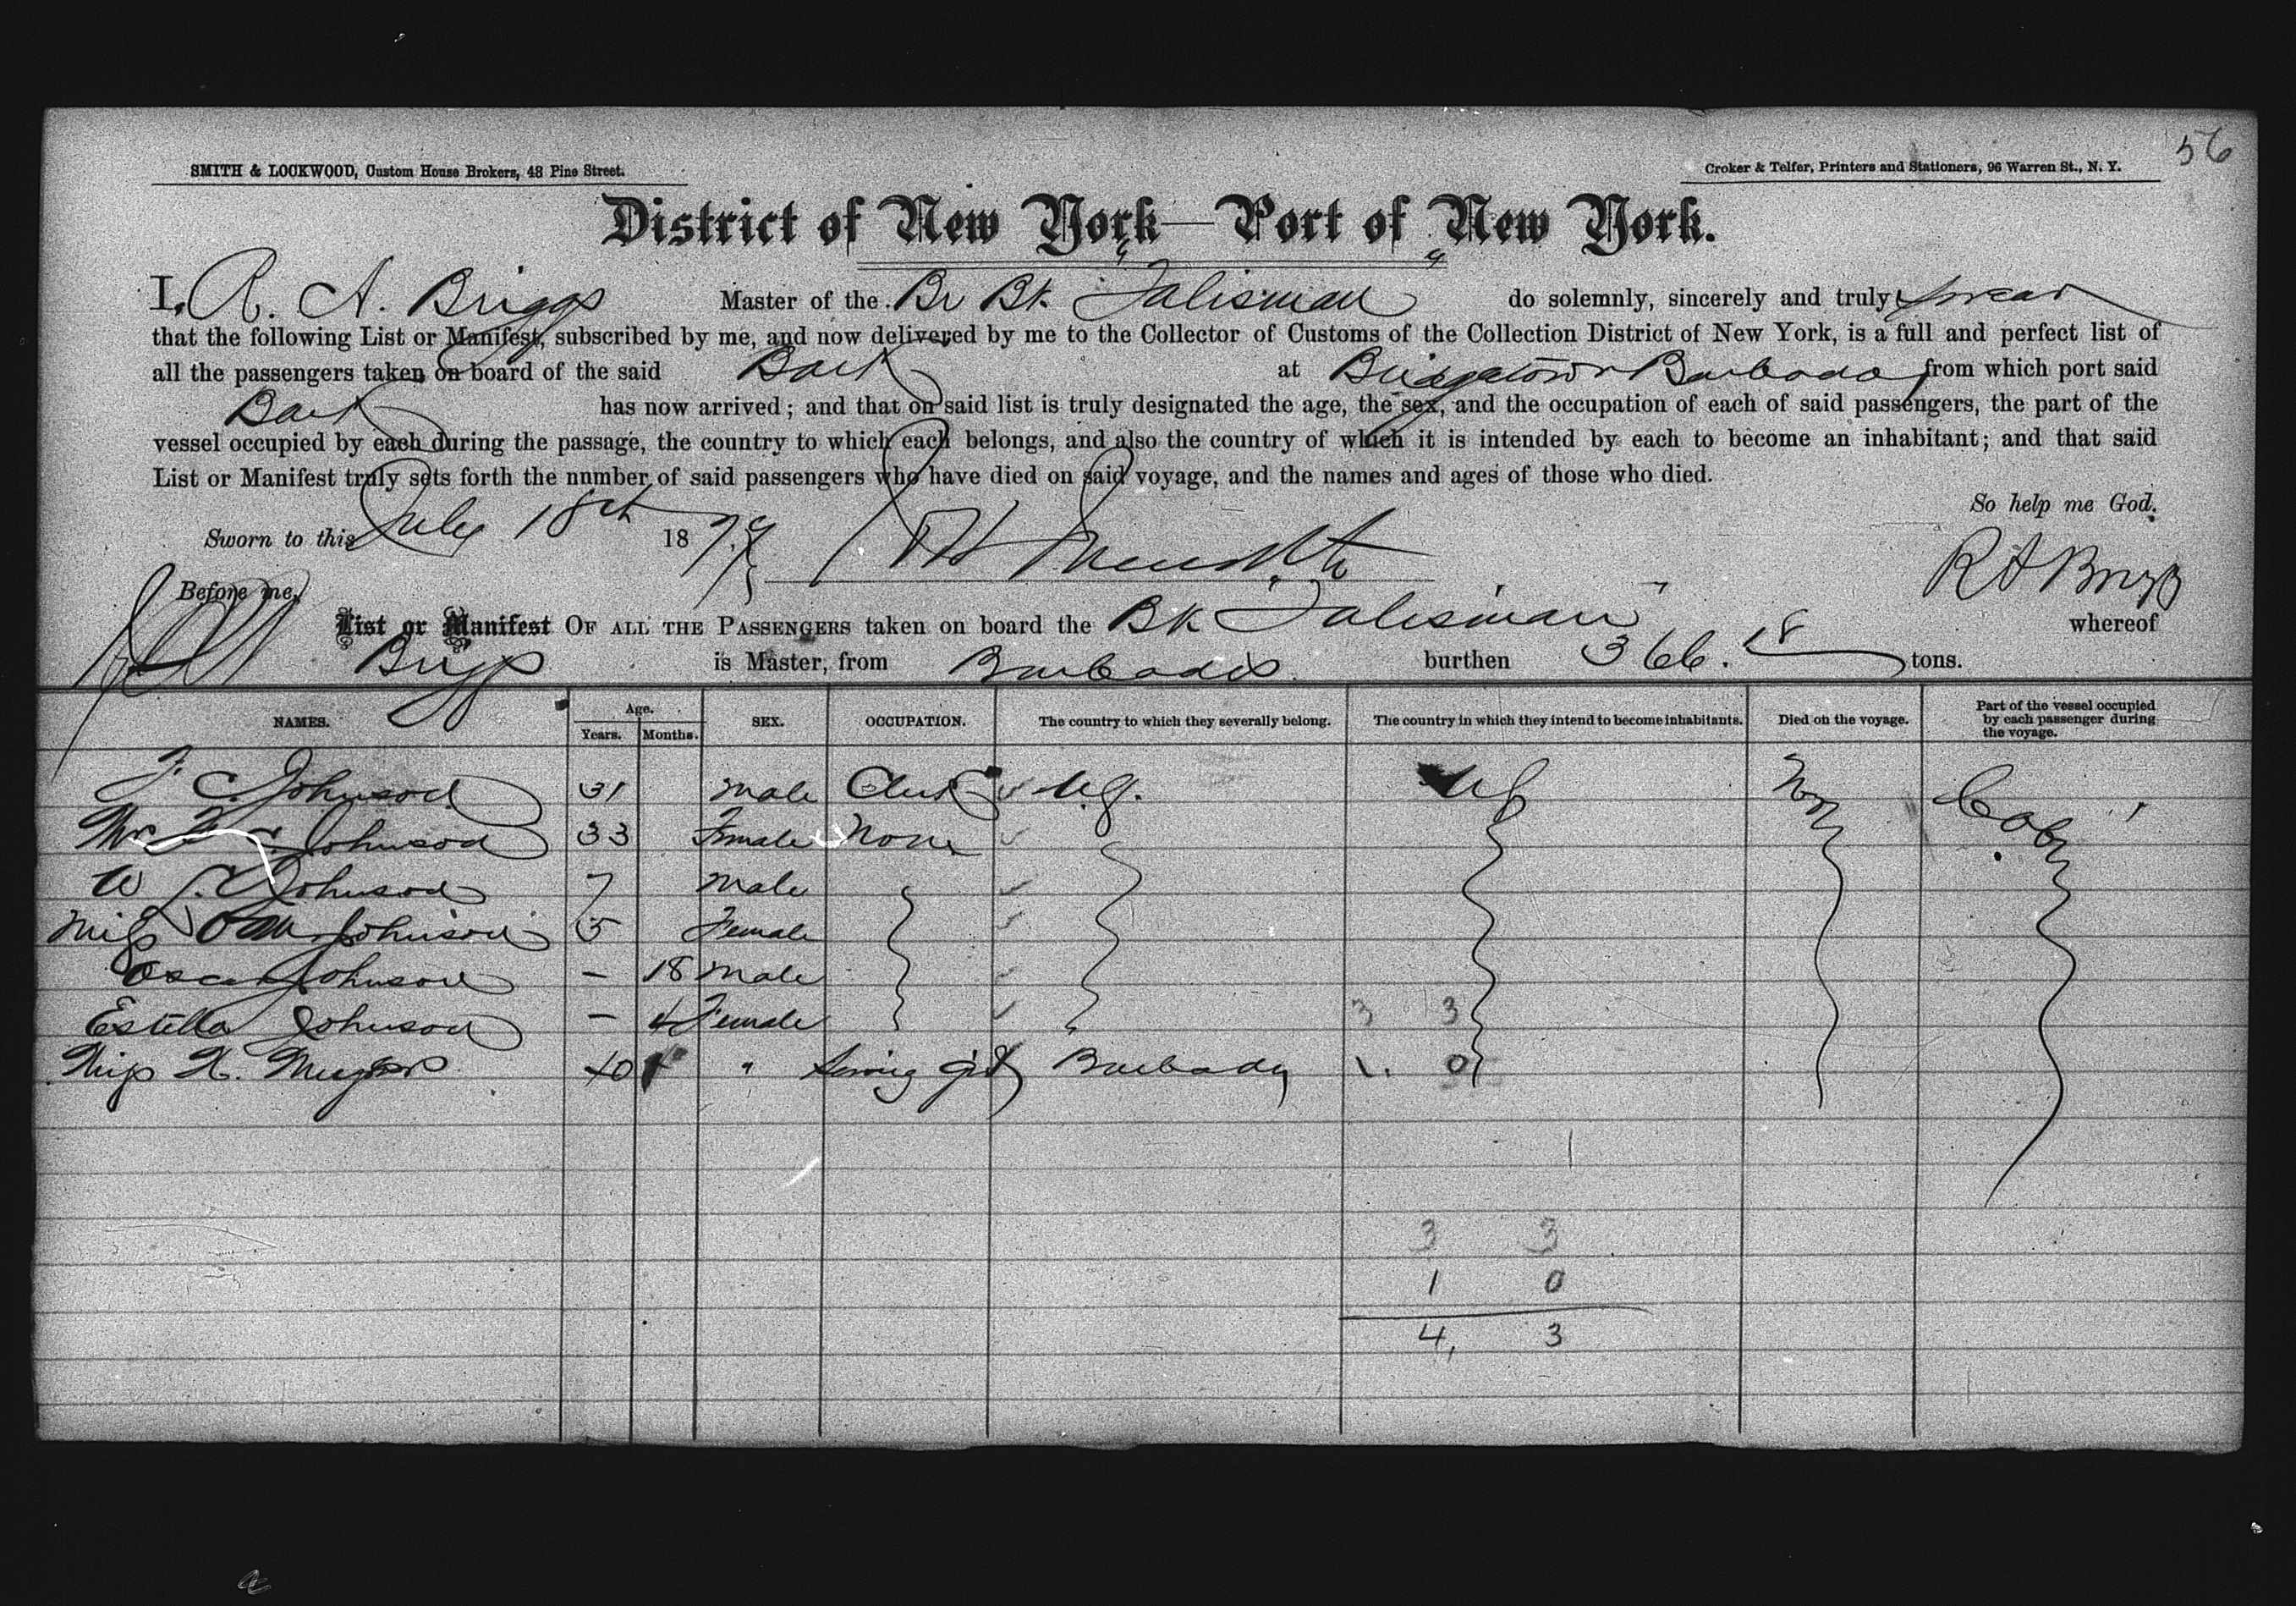 56
SMITH & LOCKWOOD, Custom House Brokers, 48 Pine Street.
Croker & Telfer, Printers and Stationers, 96 Warren St., N. Y.
District of New York—Port of New York.
I, R. A. Briggs Master of the Br Bk "Talisman" do solemnly, sincerely and truly swear
that the following List or Manifest, subscribed by me, and now delivered by me to the Collector of Customs of the Collection District of New York, is a full and perfect list of
all the passengers taken on board of the said Bark at Bridgetown Barbados from which port said
Bark has now arrived; and that on said list is truly designated the age, the sex, and the occupation of each of said passengers, the part of the
vessel occupied by each during the passage, the country to which each belongs, and also the country of which it is intended by each to become an inhabitant; and that said
List or Manifest truly sets forth the number of said passengers who have died on said voyage, and the names and ages of those who died.
So help me God.
Sworn to this July 18th 1879
R A Briggs
Before me,
List or Manifest OF ALL THE PASSENGERS taken on board the Bk Talisman" whereof
Briggs is Master, from Barbados burthen 366.18 tons.
NAMES. Age. Years. Months. SEX. OCCUPATION. The country to which they severally belong. The country in which they intend to become inhabitants. Died on the voyage. Part of the vessel occupied by each passenger during the voyage.
C. Johnson 31 Male Clerk
Johnson 33 Female None
W Johnson 7 Male
Miss Johnson 5 Female
Oscar Johnson – 18 Male
Estella Johnson – 4 Female 3 3
Miss 40 " girl Barbados 1. 0
3 3
1 0
4, 3